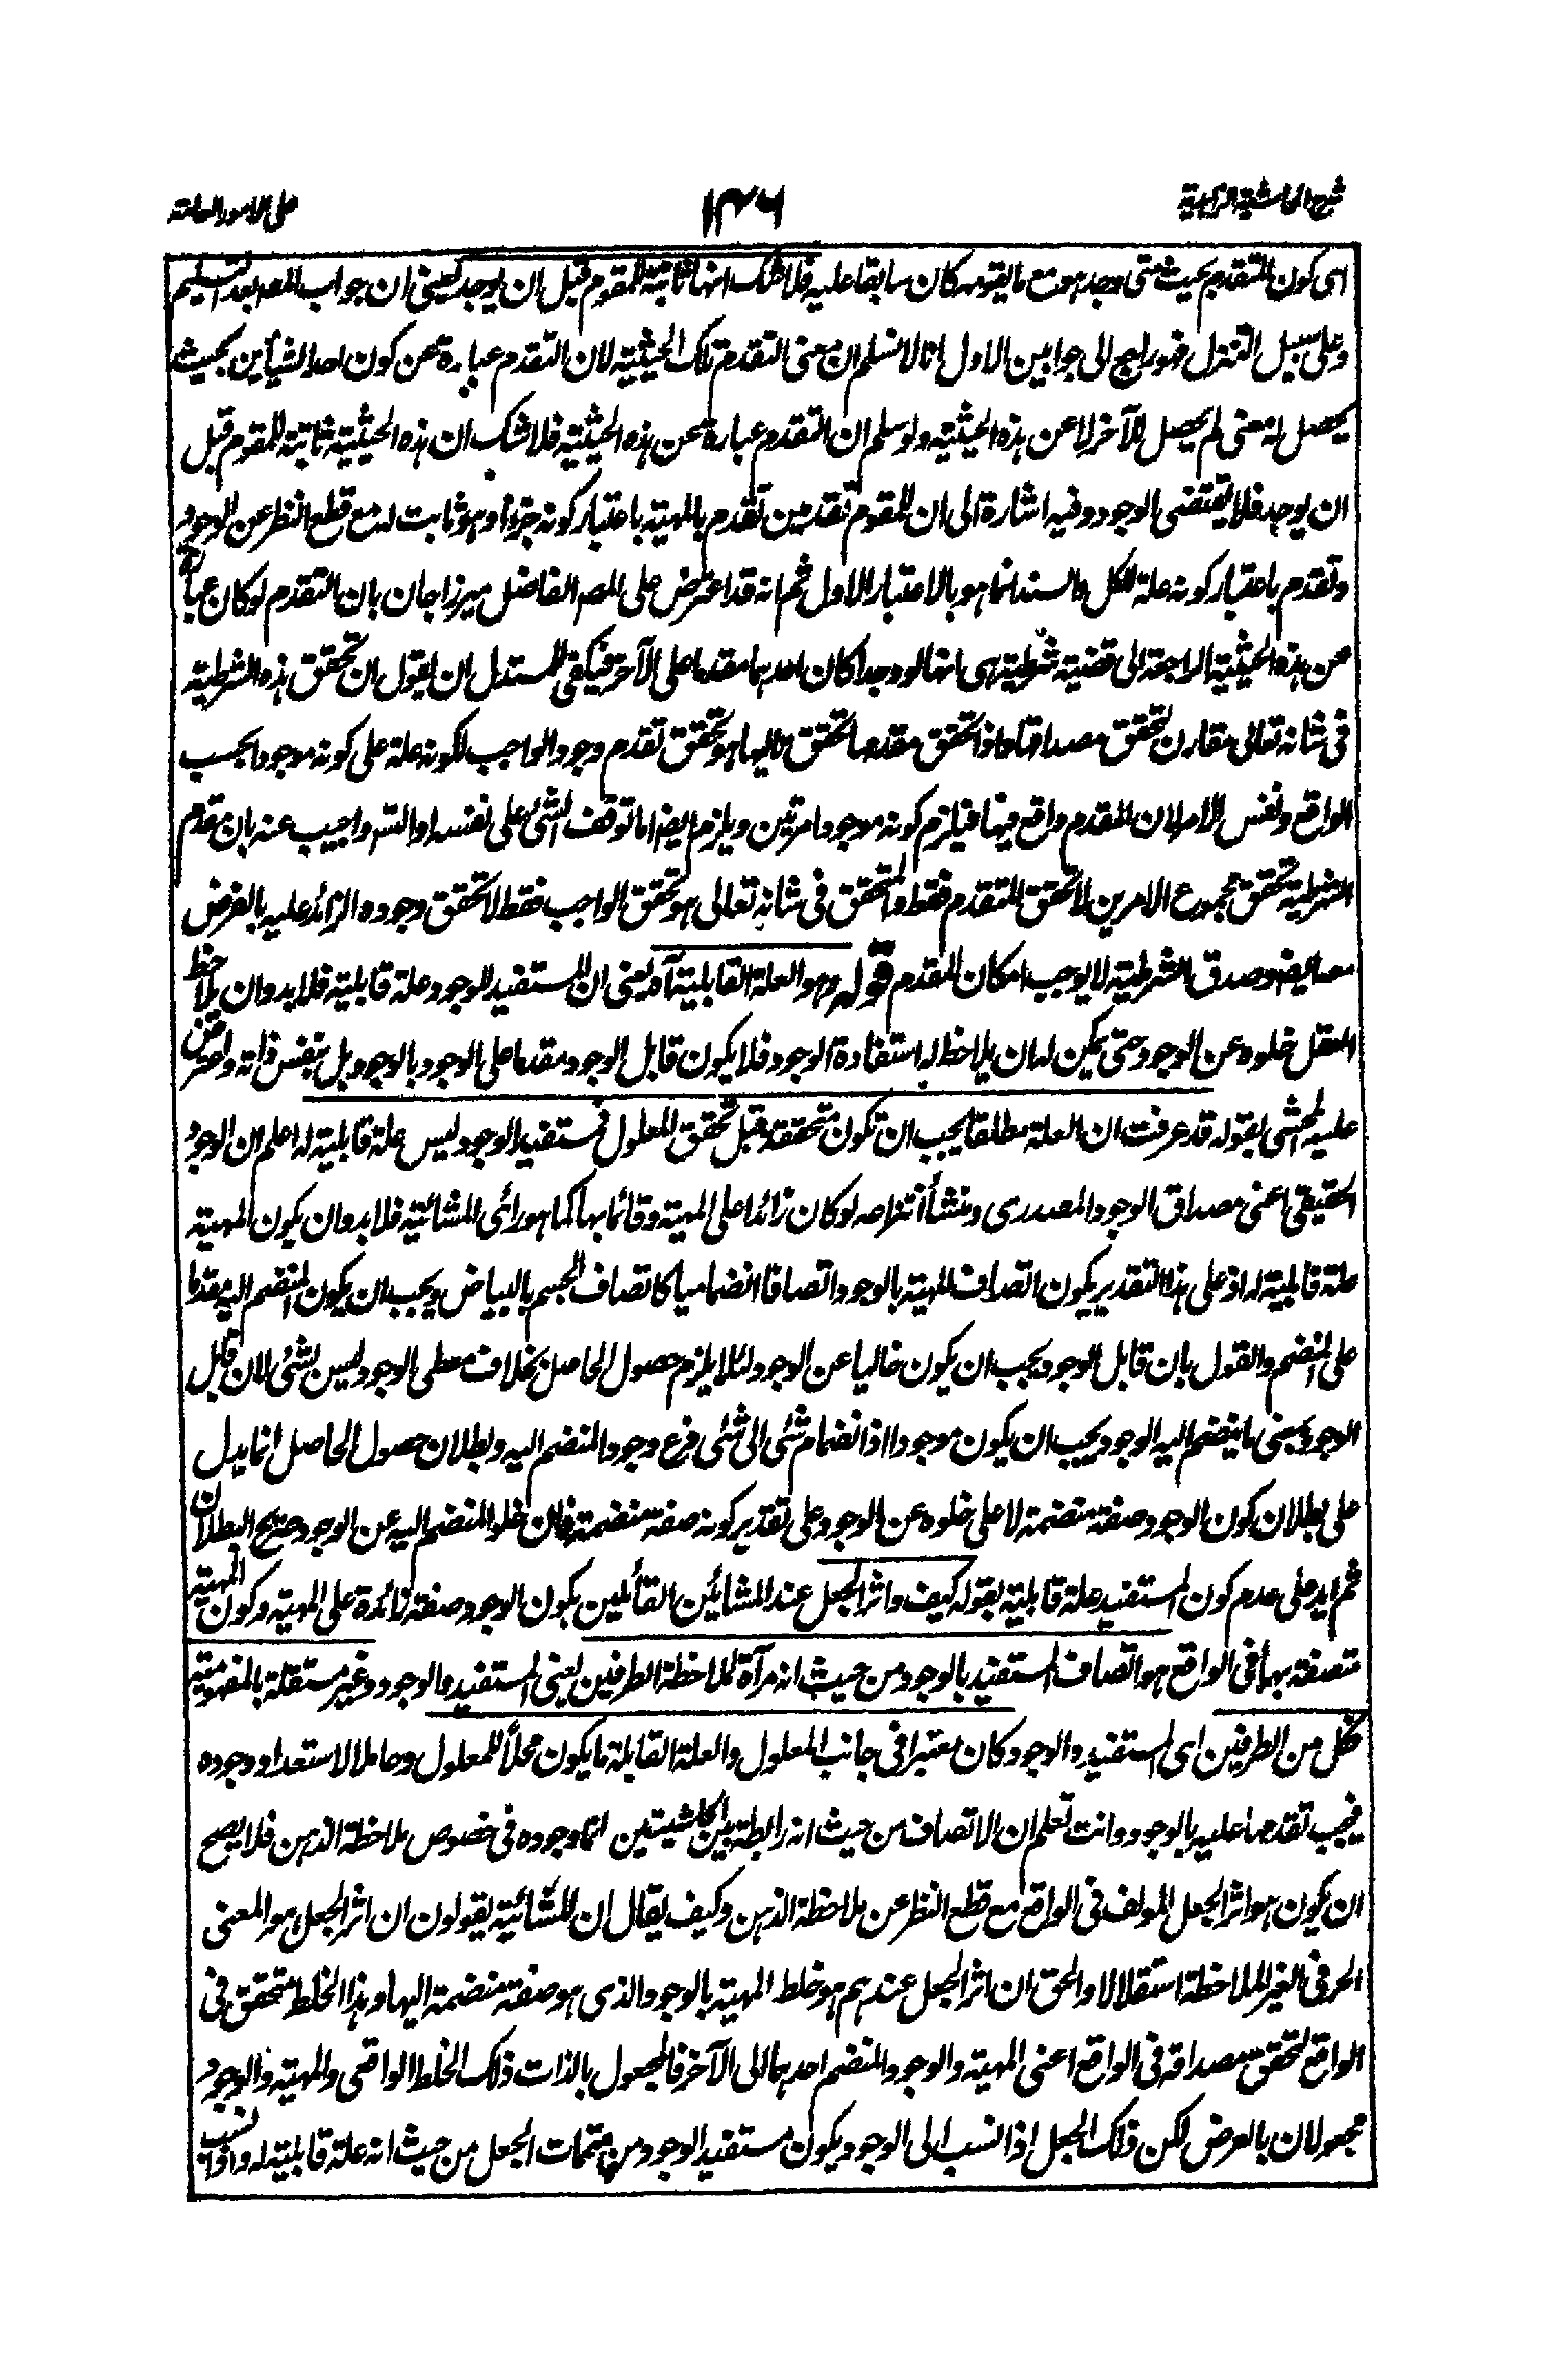 شرح الحاشية الزاهدية
١٣٦
على الامور العامة
اى كون المتقدم بحيث متى وجد هو مع ما يقومه كان سابقا عليه فلا شك انها ثابتة للمقوم قبل ان يوجد يعنى ان جواب المصه بعد التسليم
وعلى سبيل التنزل فهو راجع الى جوابين الاول انا لا نسلم ان معنى التقدم تلك الحيثية لان التقدم عبارة عن كون احد الشيأين بحيث
يحصل له معنى لم يحصل للآخر لا عن هذه الحيثية ولو سلم ان التقدم عبارة عن هذه الحيثية فلا شك ان هذه الحيثية ثابتة للمقوم قبل
ان يوجد فلا يقتضى الوجود وفيه اشارة الى ان للمقوم تقدمين تقدم بالمهية باعتبار كونه جزؤا وهو ثابت له مع قطع النظر عن الوجود
وتقدم باعتبار كونه علة للكل والسند انما هو بالاعتبار الاول ثم انه قد اعترض على المصه الفاضل ميرزا جان بان التقدم لو كان عبارة
عن هذه الحيثية الراجعة الى قضية شرطية هى انهما لو وجدا كان احدهما مقدما على الآخر فيكفى للمستدل ان يقول ان تحقق هذه الشرطية
فى شانه تعالى مقارن لتحقق مصداقها واذا تحقق مقدمها تحقق تاليها هو تحقق تقدم وجود الواجب لكونه علة على كونه موجودا بحسب
الواقع ونفس الامر لان المقدم واقع فيها فيلزم كونه موجودا مرتين ويلزم ايضه اما توقف الشئ على نفسه او التسه واجيب عنه بان مقدم
الشرطية تحقق مجموع الامرين لا تحقق المتقدم فقط والمتحقق فى شانه تعالى هو تحقق الواجب فقط لا تحقق وجوده الزائد عليه بالفرض
معه ايضه وصدق الشرطية لا يوجب امكان المقدم قوله وهو العلة القابلية آه يعنى ان المستفيد للوجود علة قابلية فلا بد وان يلاحظ
العقل خلوه عن الوجود حتى يمكن له ان يلاحظ له استفادة الوجود فلا يكون قابل الوجود مقدما على الوجود بالوجود بل بنفس ذاته واعترض
عليه المحشى بقوله قد عرفت ان العلة مطلقا يجب ان تكون متحققة قبل تحقق المعلول فمستفيد الوجود ليس علة قابلية له اعلم ان الوجود
الحقيقى اعنى مصداق الوجود المصدرى ومنشأ انتزاعه لو كان زائدا على المهية وقائما بها كما هو رائى المشائية فلا بد وان يكون المهية
علة قابلية له اذ على هذا التقدير يكون اتصاف المهية بالوجود اتصافا انضماميا كاتصاف الجسم بالبياض ويجب ان يكون المنضم اليه مقدما
على المنضم والقول بان قابل الوجود يجب ان يكون خاليا عن الوجود لئلا يلزم حصول الحاصل بخلاف معطى الوجود ليس بشئ لان قابل
الوجود بمعنى ما ينضم اليه الوجود يجب ان يكون موجودا اذ انضمام شئى الى شئى فرع وجود المنضم اليه وبطلان حصول الحاصل انما يدل
على بطلان كون الوجود صفة منضمة لا على خلوه عن الوجود وعلى تقدير كونه صفة منضمة فان خلو المنضم اليه عن الوجود صريح البطلان
ثم ايد على عدم كون المستفيد علة قابلية بقوله كيف واثر الجعل عند المشائين القائلين بكون الوجود صفة زائدة على المهية وكون المهية
متصفة بها فى الواقع هو اتصاف المستفيد بالوجود من حيث انه مرآة لملاحظة الطرفين يعنى المستفيد والوجود وغير مستقلة بالمفهومية
فكل من الطرفين اى المستفيد والوجود كان معتبرا فى جانب المعلول والعلة القابلة ما يكون محلا للمعلول وحاملا لاستعداد وجوده
فيجب تقدمها عليه بالوجود وانت تعلم ان الاتصاف من حيث انه رابطة بين الحاشيتين انما وجوده فى خصوص ملاحظة الذهن فلا يصح
ان يكون هو اثر الجعل المولف فى الواقع مع قطع النظر عن ملاحظة الذهن وكيف يقال ان المشائية يقولون ان اثر الجعل هو المعنى
الحرفى الغير الملاحظة استقلالا والحق ان اثر الجعل عندهم هو خلط المهية بالوجود الذى هو صفة منضمة اليها وهذا الخلط متحقق فى
الواقع لتحقق مصداقه فى الواقع اعنى المهية والوجود المنضم احدهما الى الآخر فالمجعول بالذات ذلك الخلط الواقعى والمهية والوجود
مجعولان بالعرض لكن ذلك الجعل اذا نسب الى الوجود يكون مستفيد الوجود من متممات الجعل من حيث انه علة قابلية له واذا نسب